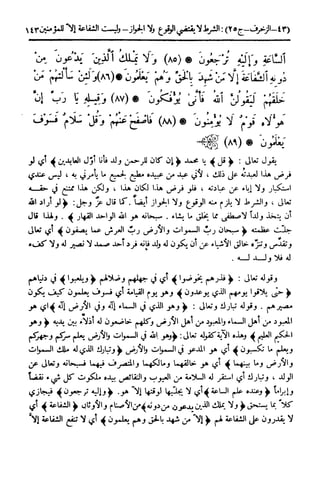 (٤٣ - الزخرف - ج٢٥) : الشرط لا يقتضي الوقوع ولا الجواز - وليست الشفاعة إلا للمؤمنين ١٤٣
السَّاعَةِ وَإِلَيْهِ تُرْجَعُونَ ﴿٨٥﴾ وَلَا يَمْلِكُ الَّذِينَ يَدْعُونَ مِنْ
دُونِهِ الشَّفَاعَةَ إِلَّا مَنْ شَهِدَ بِالْحَقِّ وَهُمْ يَعْلَمُونَ ﴿٨٦﴾ وَلَئِنْ سَأَلْتَهُمْ مَنْ
خَلَقَهُمْ لَيَقُولُنَّ اللهُ فَأَنَّى يُؤْفَكُونَ ﴿٨٧﴾ وَقِيلِهِ يَا رَبِّ إِنَّ
هَؤُلَاءِ قَوْمٌ لَا يُؤْمِنُونَ ﴿٨٨﴾ فَاصْفَحْ عَنْهُمْ وَقُلْ سَلَامٌ فَسَوْفَ
يَعْلَمُونَ ﴿٨٩﴾
يقول تعالى : ﴿ قل ﴾ يا محمد ﴿ إن كان للرحمن ولد فأنا أول العابدين ﴾ أي لو
فرض هذا لعبدته على ذلك ، لأني عبد من عبيده مطيع لجميع ما يأمرني به ، ليس عندي
استكبار ولا إباء عن عبادته ، فلو فرض هذا لكان هذا ، ولكن هذا ممتنع في حقه
تعالى ، والشرط لا يلزم منه الوقوع ولا الجواز أيضاً . كما قال عز وجل : ﴿ لو أراد الله
أن يتخذ ولداً لاصطفى مما يخلق ما يشاء . سبحانه هو الله الواحد القهار ﴾ . ولهذا قال
جلت عظمته ﴿ سبحان رب السموات والأرض رب العرش عما يصفون ﴾ أي تعالى
وتقدّس وتنزّه خالق الأشياء عن أن يكون له ولد فإنه فرد أحد صمد لا نصير له ولا كفء
له فلا ولد له .
وقوله تعالى : ﴿ فذرهم يخوضوا ﴾ أي في جهلهم وضلالهم ﴿ ويلعبوا ﴾ في دنياهم
﴿ حتى يلاقوا يومهم الذي يوعدون ﴾ وهو يوم القيامة أي فسوف يعلمون كيف يكون
مصيرهم . وقوله تبارك وتعالى : ﴿ وهو الذي في السماء إله وفي الأرض إله ﴾ أي هو
المعبود من أهل السماء والمعبود من أهل الأرض وكلهم خاضعون له أذلاء بين يديه ﴿ وهو
الحكيم العليم ﴾ وهذه الآية كقوله تعالى : ﴿ وهو الله في السموات والأرض يعلم سركم وجهركم
ويعلم ما تكسبون ﴾ أي هو المدعو في السموات والأرض ﴿ وتبارك الذي له ملك السموات
والأرض وما بينهما ﴾ أي هو خالقهما ومالكهما والمتصرف فيهما فسبحانه وتعالى عن
الولد ، وتبارك أي استقر له السلامة من العيوب والنقائص بيده ملكوت كل شيء نقضاً
وإبراماً ﴿ وعنده علم الساعة ﴾ أي لا يجليها لوقتها إلا هو . ﴿ وإليه ترجعون ﴾ فيجازي
كلاً بما يستحق ﴿ ولا يملك الذين يدعون من دونه ﴾ من الأصنام والأوثان ﴿ الشفاعة ﴾ أي
لا يقدرون على الشفاعة لهم ﴿ إلا من شهد بالحق وهم يعلمون ﴾ أي لا تنفع الشفاعة إلا